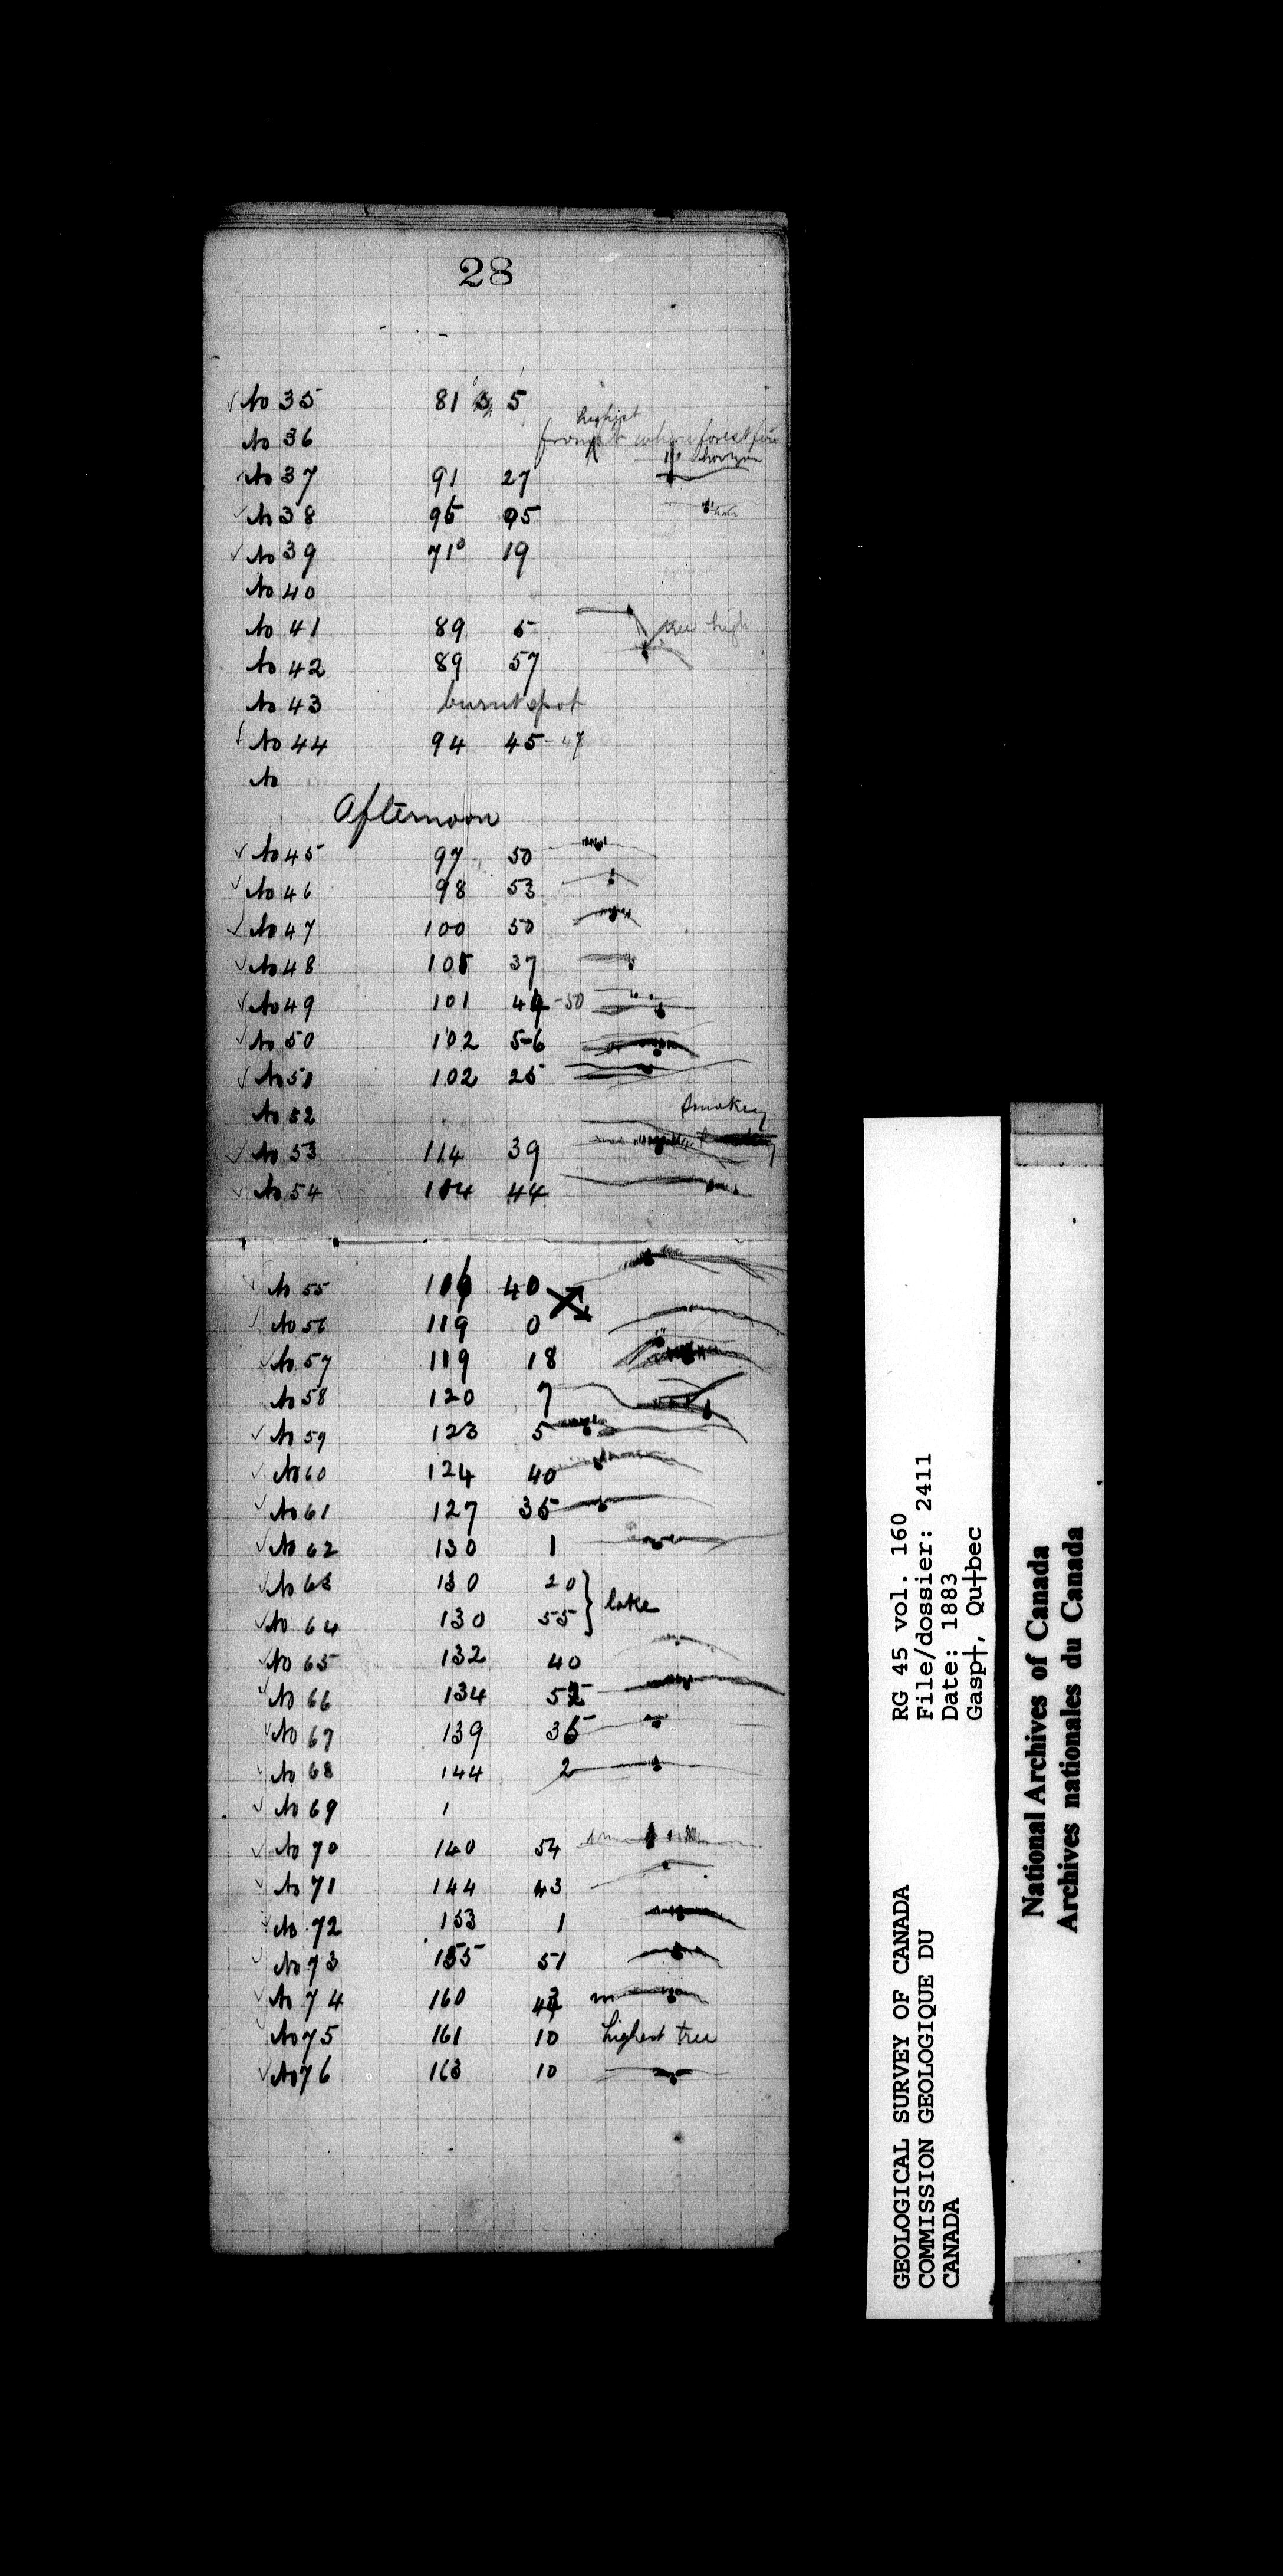 28
No 35 81 5
highest
No 36 from where forest fire
No 37 91 27 horizon
No 38 95 05
No 39 71° 19
No 40
No 41 89 5 tree high
No 42 89 57
No 43 burnt spot
No 44 94 45-47
No
Afternoon
No 45 97 50
No 46 98 53
No 47 100 50
No 48 101 37
No 49 101 49-50
No 50 102 56
No 51 102 25
No 52 Smokey
No 53 114 39
No 54 104 44
No 55 116 40
No 56 119 0
No 57 119 18
No 58 120 7
No 59 123 5
No 60 124 40
No 61 127 35
No 62 130 1
No 63 130 20
lake
No 64 130 55
No 65 132 40
No 66 134 52
No 67 139 35
No 68 144 2
No 69 1
No 70 140 54
No 71 144 43
No 72 153 1
No 73 155 51
No 74 160 43
No 75 161 10 highest tree
No 76 163 10
GEOLOGICAL SURVEY OF CANADA RG 45 vol. 160
COMMISSION GEOLOGIQUE DU File/dossier: 2411
CANADA Date: 1883
Gasp†, Qu†bec
National Archives of Canada
Archives nationales du Canada